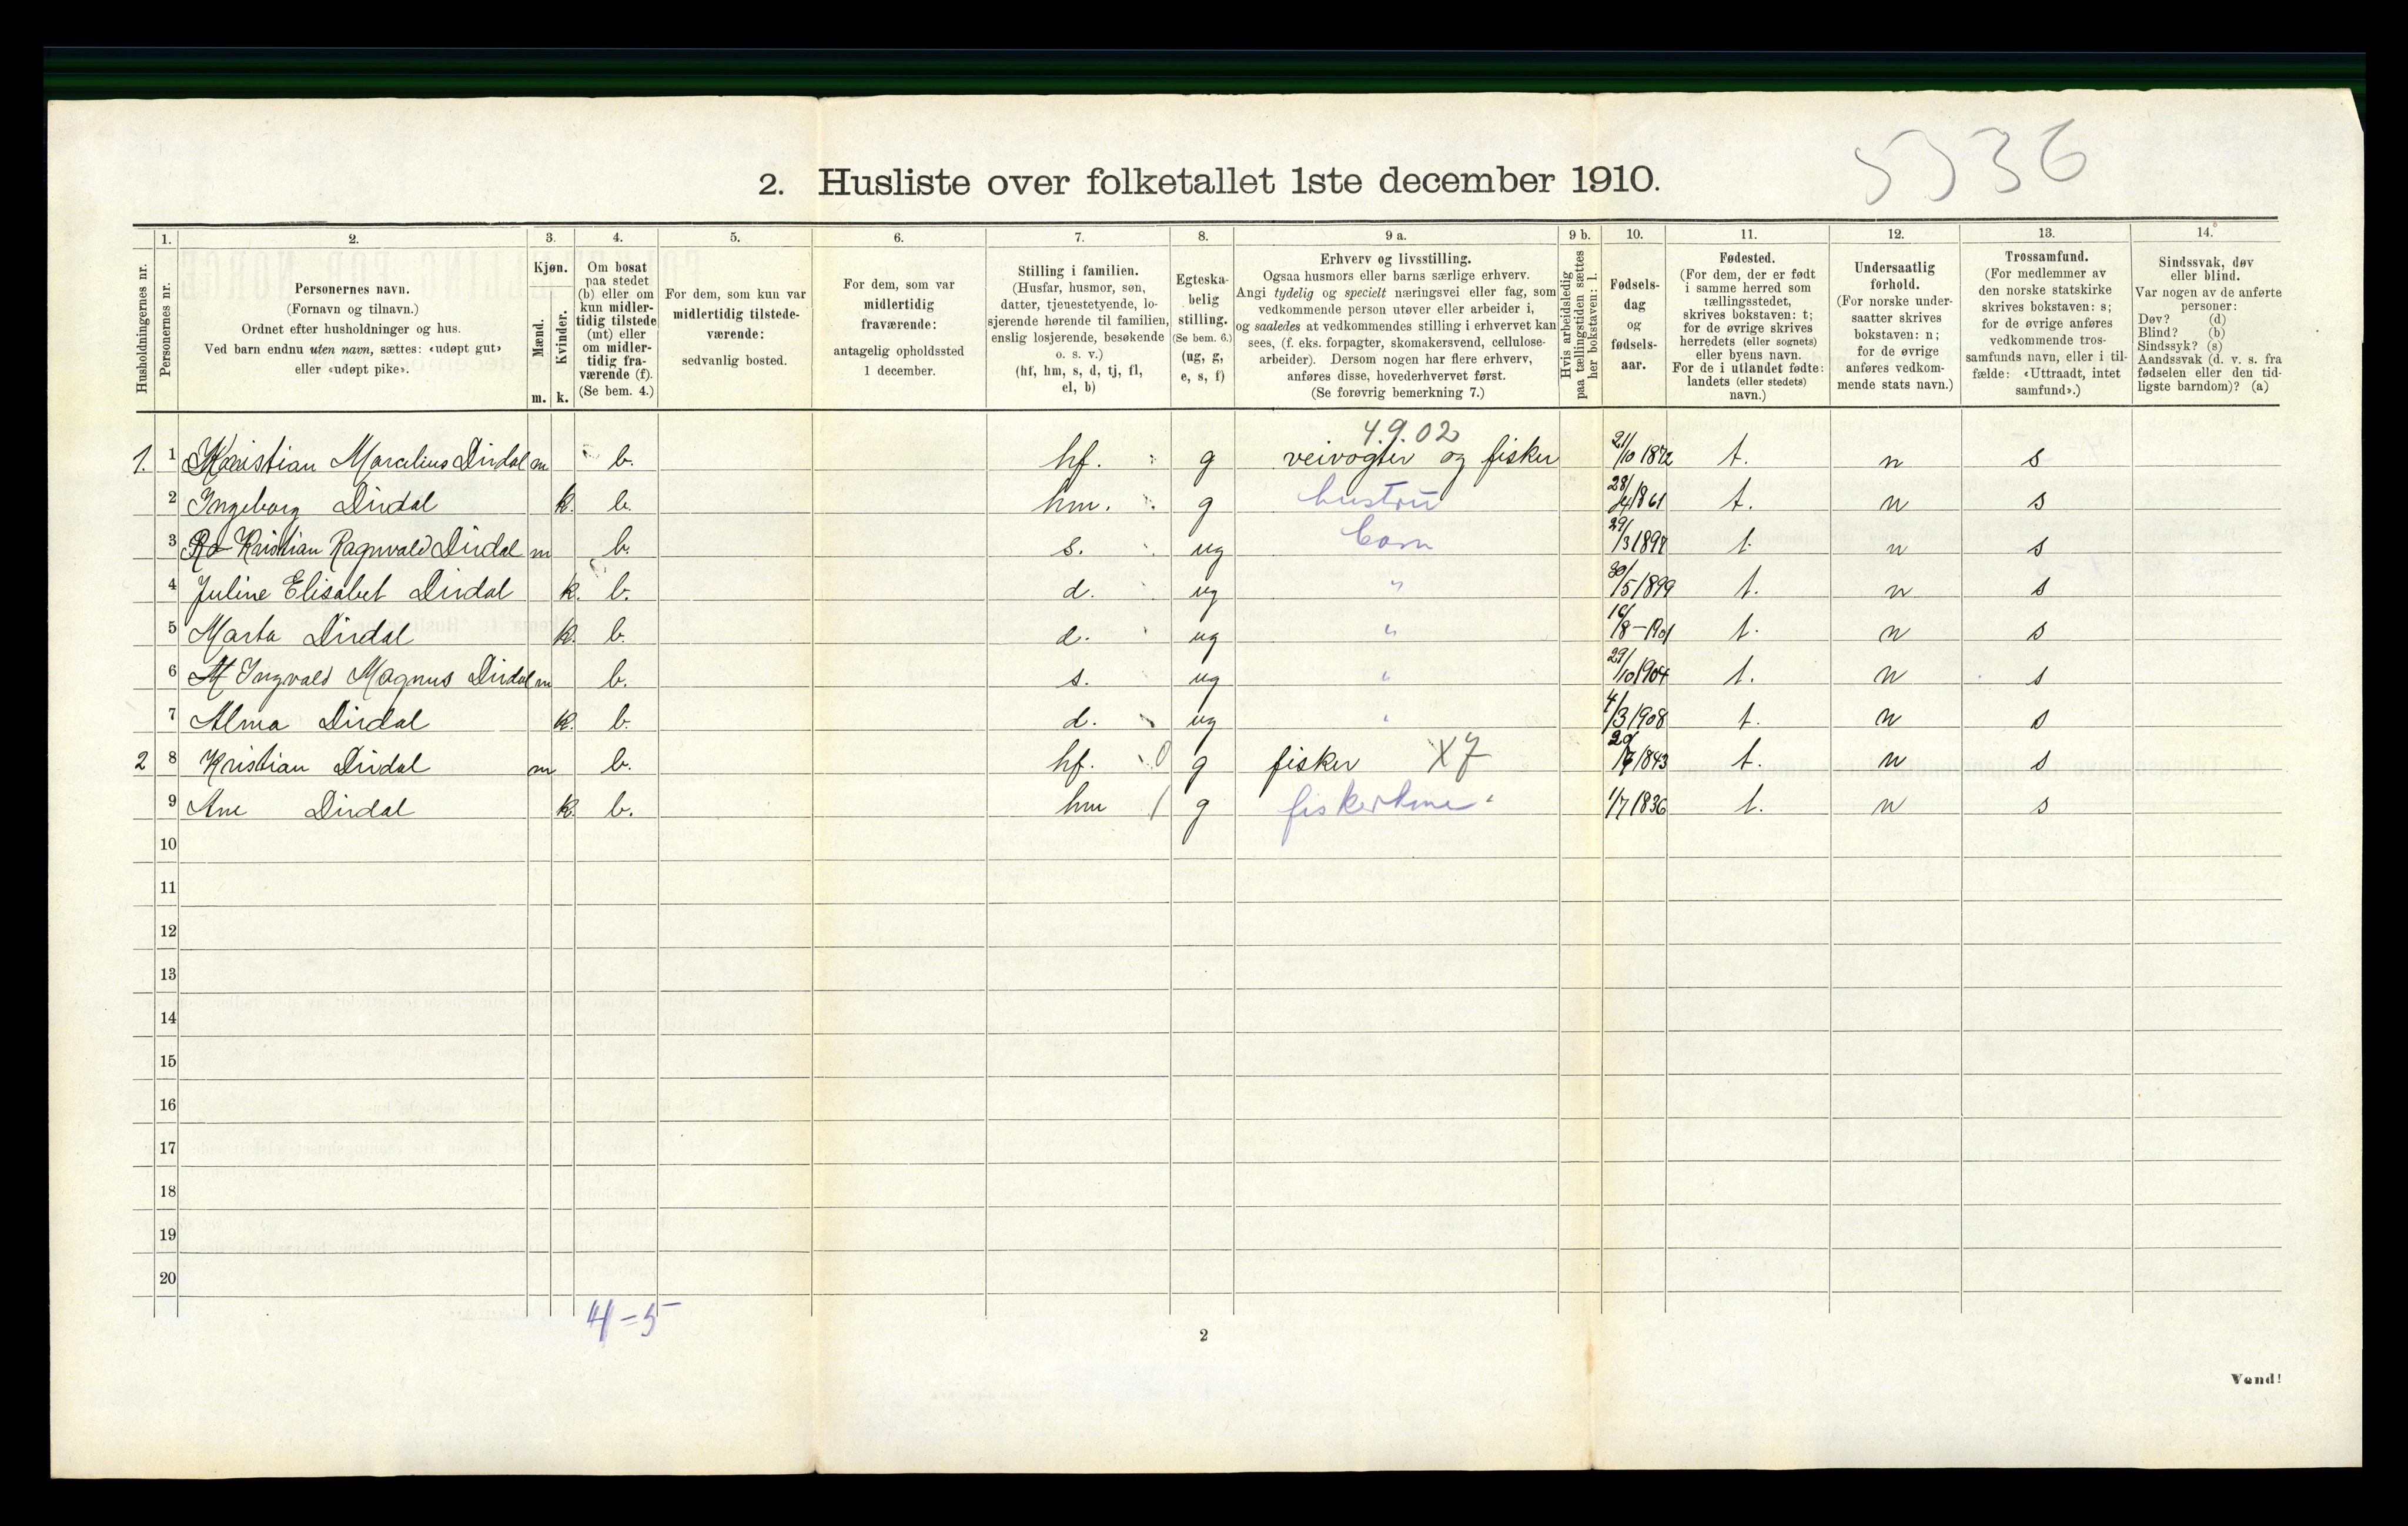 5536
2. Husliste over folketallet 1ste december 1910.
Husholdningernes nr.
1.
Personernes nr.
2.
Personernes navn.
(Fornavn og tilnavn.)
Ordnet efter husholdninger og hus.
Ved barn endnu uten navn, sættes: «udøpt gut»
eller «udøpt pike».
3.
Kjøn.
Mænd.
Kvinder.
m. k.
4.
Om bosat
paa stedet
(b) eller om
kun midler-
tidig tilstede
(mt) eller
om midler-
tidig fra-
værende (f).
(Se bem. 4.)
5.
For dem, som kun var
midlertidig tilstede-
værende:
sedvanlig bosted.
6.
For dem, som var
midlertidig
fraværende:
antagelig opholdssted
1 december.
7.
Stilling i familien.
(Husfar, husmor, søn,
datter, tjenestetyende, lo-
sjerende hørende til familien,
enslig losjerende, besøkende
o. s. v.)
(hf, hm, s, d, tj, fl,
el, b)
8.
Egteska-
belig
stilling.
(Se bem. 6.)
(ug, g,
e, s, f)
9 a.
Erhverv og livsstilling.
Ogsaa husmors eller barns særlige erhverv.
Angi tydelig og specielt næringsvei eller fag, som
vedkommende person utøver eller arbeider i,
og saaledes at vedkommendes stilling i erhvervet kan
sees, (f. eks. forpagter, skomakersvend, cellulose-
arbeider). Dersom nogen har flere erhverv,
anføres disse, hovederhvervet først.
(Se forøvrig bemerkning 7.)
9 b.
Hvis arbeidsledig
paa tællingstiden sættes
her bokstaven: l.
10.
Fødsels-
dag
og
fødsels-
aar.
11.
Fødested.
(For dem, der er født
i samme herred som
tællingsstedet,
skrives bokstaven: t;
for de øvrige skrives
herredets (eller sognets)
eller byens navn.
For de i utlandet fødte:
landets (eller stedets)
navn.)
12.
Undersaatlig
forhold.
(For norske under-
saatter skrives
bokstaven: n;
for de øvrige
anføres vedkom-
mende stats navn.)
13.
Trossamfund.
(For medlemmer av
den norske statskirke
skrives bokstaven: s;
for de øvrige anføres
vedkommende tros-
samfunds navn, eller i til-
fælde: «Uttraadt, intet
samfund».)
14.
Sindssvak, døv
eller blind.
Var nogen av de anførte
personer:
Døv? (d)
Blind? (b)
Sindssyk? (s)
Aandssvak (d. v. s. fra
fødselen eller den tid-
ligste barndom)? (a)
4.9.02
1. 1 Kristian Marcelius Dirdal m b. hf. g veivogter og fisker 21/10 1872 t. n s
2 Ingeborg Dirdal k. b. hm. g hustru 28/4 1861 t. n s
3 Kristian Ragnvald Dirdal m b. s. ug barn 29/3 1897 t. n s
4 Juline Elisabet Dirdal k. b. d. ug " 30/5 1899 t. n s
5 Marta Dirdal k. b. d. ug " 16/8-1901 t. n s
6 Ingvald Magnus Dirdal m b. s. ug " 29/10 1904 t. n s
7 Alma Dirdal k. b. d. ug " 4/3 1908 t. n s
2 8 Kristian Dirdal m b. hf. 0 g fisker X7 1843 t. n s
9 Ane Dirdal k. b. hm 1 g fiskerkone 1/7 1836 t. n s
10
11
12
13
14
15
16
17
18
19
20
4-5
2
Vend!